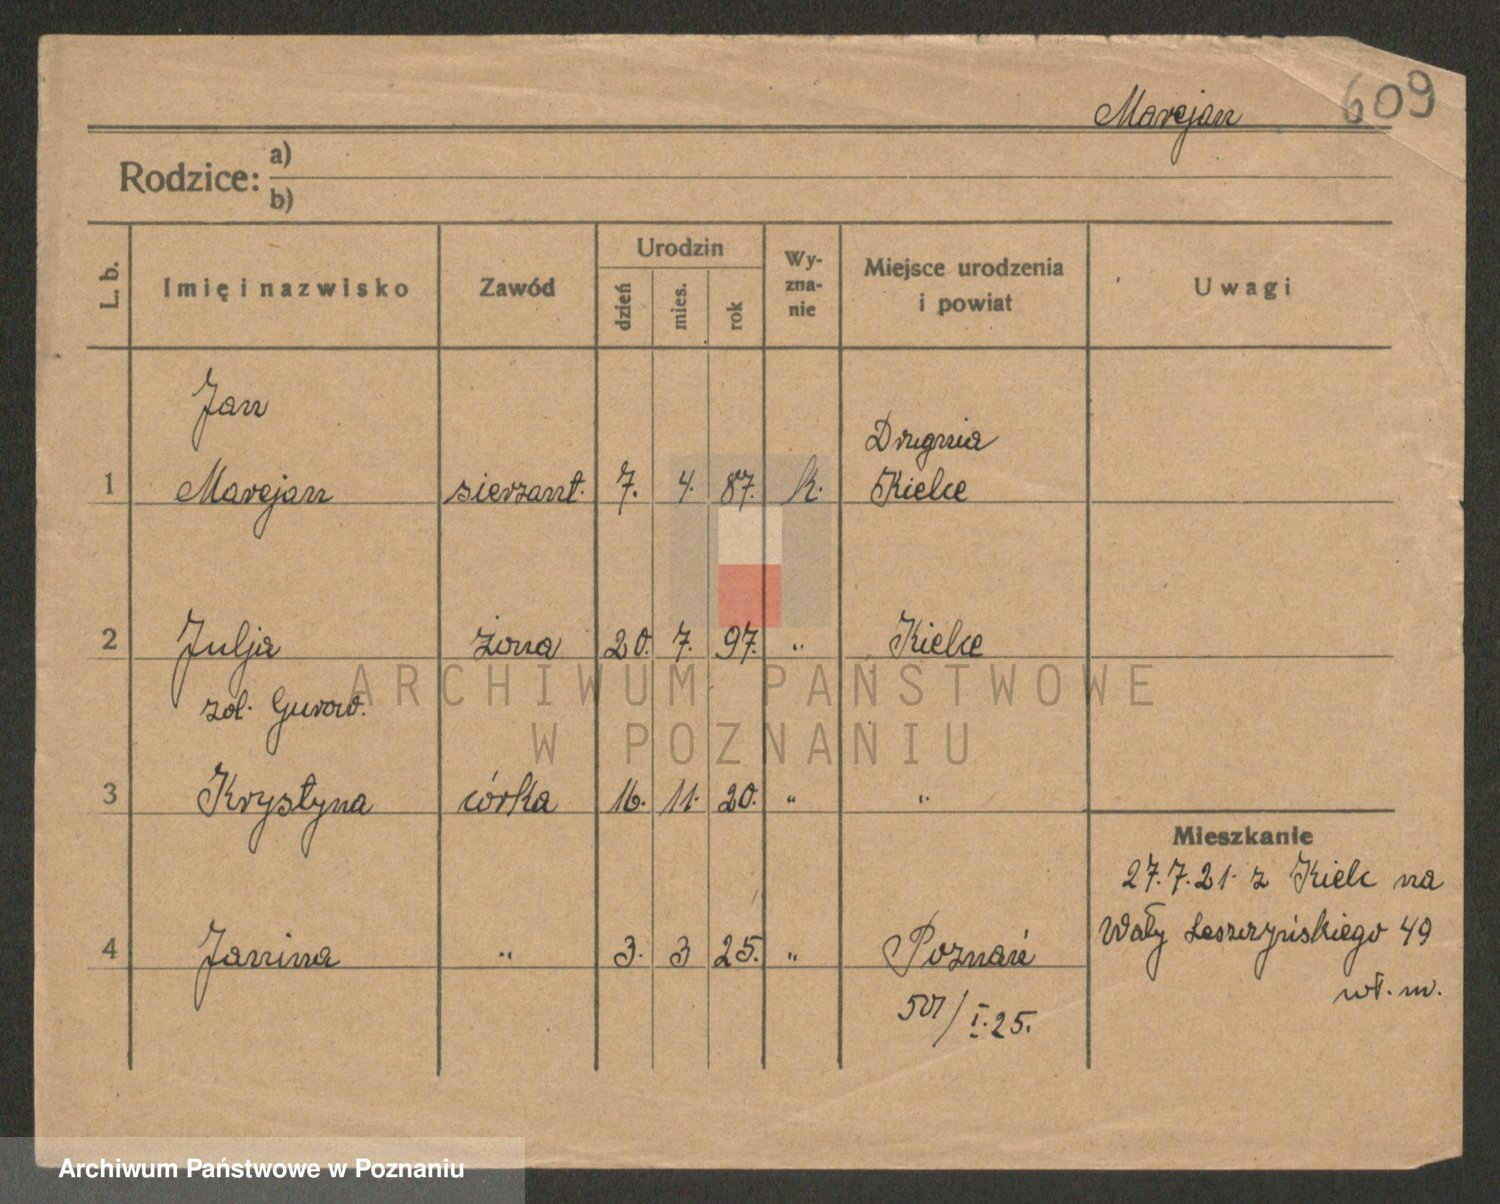 Marejan 609
Rodzice: a)
b)
L. b. Imię i nazwisko Zawód Urodzin dzień mies. rok Wy-zna-nie Miejsce urodzenia i powiat Uwagi
Jan
Drugnia
1 Marejan sierzant. 7. 4. 87. k. Kielce
2 Julja żona 20. 7. 97. " Kielce
ARCHIWUM PAŃSTWOWE
W POZNANIU
3 Krystyna córka 16. 11. 20. " "
Mieszkanie
27.7.21. z Kielc na
Wały Leszczyńskiego 49
wł. m.
4 Janina " 3. 3 25. " Poznań
I. 25.
Archiwum Państwowe w Poznaniu